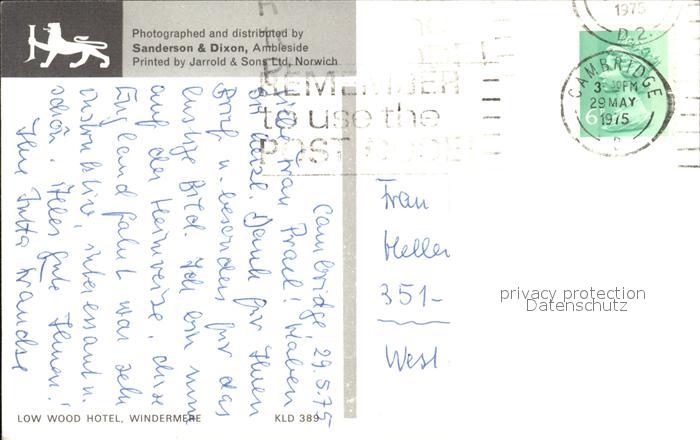 Photographed and distributed by
Sanderson & Dixon, Ambleside
Printed by Jarrold & Sons Ltd, Norwich
REMEMBER
to use the
POST CODE
1975
CAMBRIDGE
3 30PM
29 MAY
1975
6
Cambridge, 29.5.75
Liebe Frau! Haben
Sie herzl. Dank für Ihren
Brief u. besonders für das
lustige Bild. Ich bin nun
auf der Heimreise, diese
England fahrt war sehr
instruktiv, interessant u.
schön. Alles gute Ihnen!
Ihre Jutta
Frau
Heller
351-
West
privacy protection
Datenschutz
LOW WOOD HOTEL, WINDERMERE
KLD 389